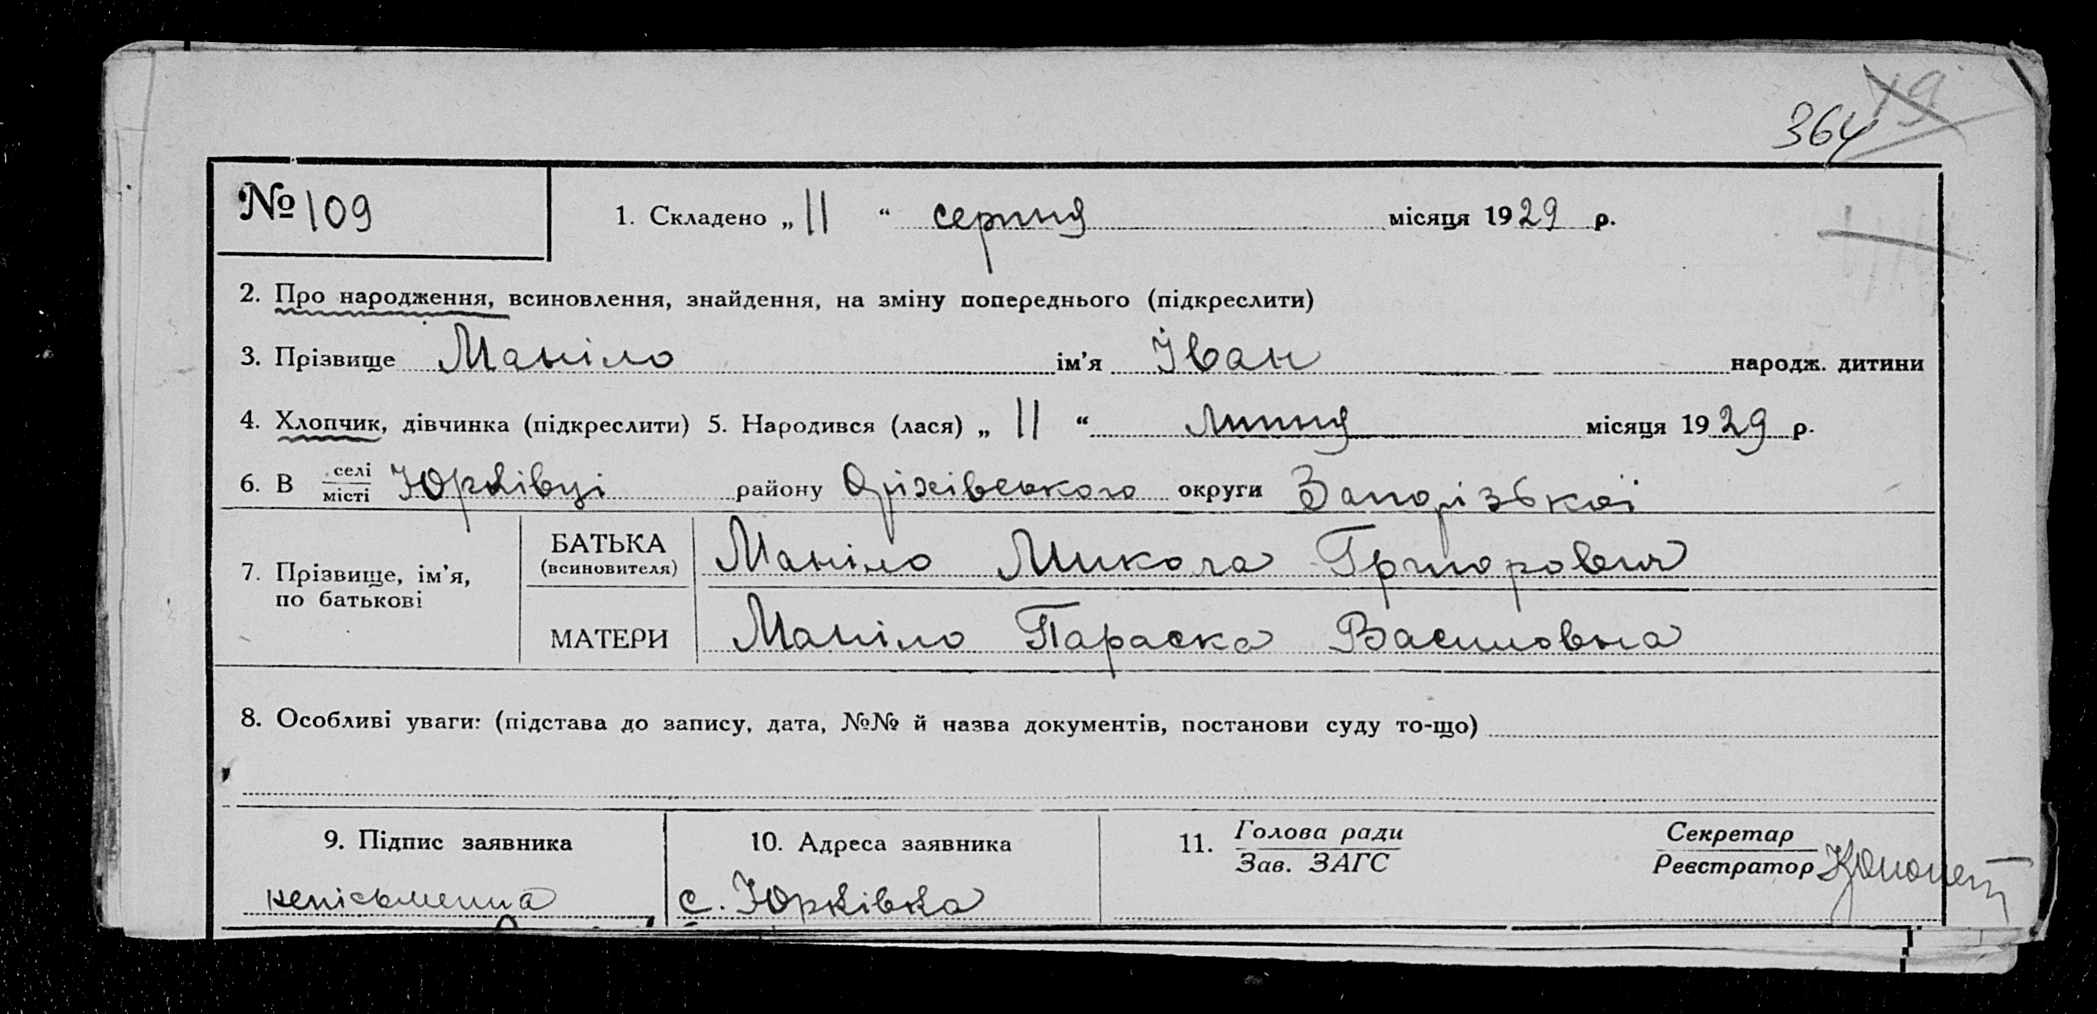 364 19
№ 109
1. Складено „ 11 “ серпня місяця 1929 р.
2. Про народження, всиновлення, знайдення, на зміну попереднього (підкреслити)
3. Прізвище Маніло ім’я Іван народж. дитини
4. Хлопчик, дівчинка (підкреслити) 5. Народився (лася) „ 11 “ липня місяця 1929 р.
6. В селі Юрківці району Оріхівського округи Запорізької
місті
7. Прізвище, ім’я, по батькові
БАТЬКА (всиновителя) Маніло Микола Григорович
МАТЕРИ Маніло Параска Василовна
8. Особливі уваги: (підстава до запису, дата, №№ й назва документів, постанови суду то-що)
9. Підпис заявника
неписьменна
10. Адреса заявника
с. Юрківка
11. Голова ради
Зав. ЗАГС
Секретар
Реєстратор